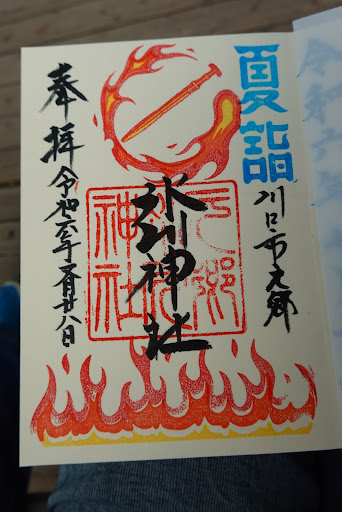 夏詣
川口市元郷
氷川神社
元郷
氷川
神社
奉拝
令和六年七月廿八日